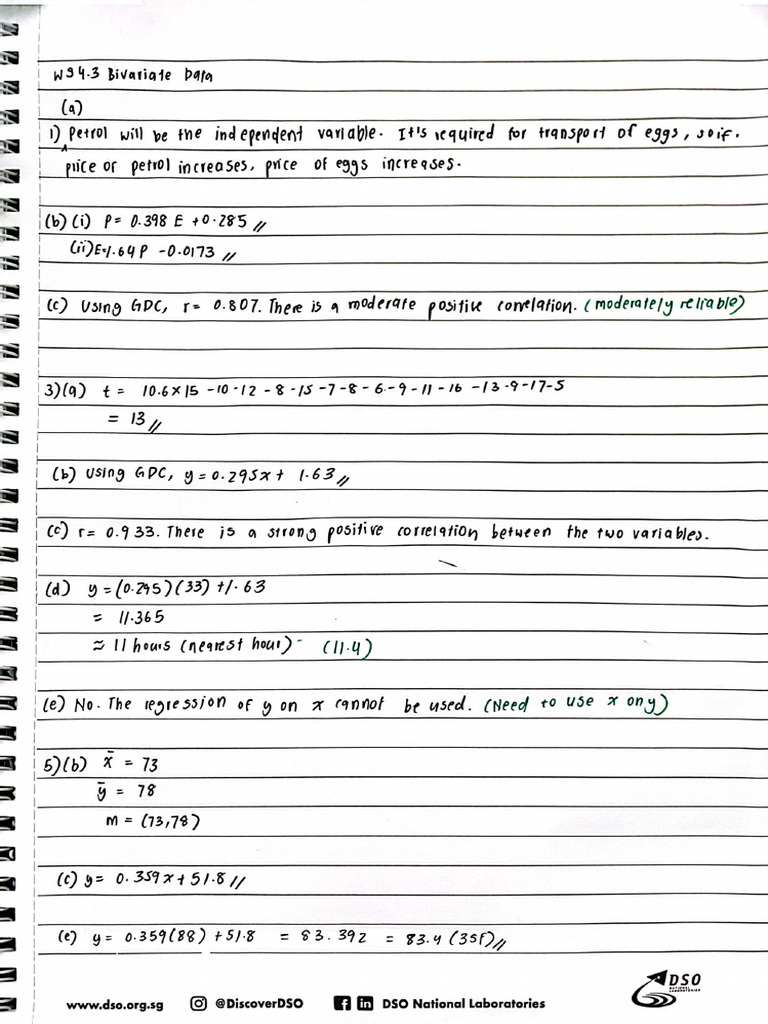 WS4.3 Bivariate Data
(a)
1) Petrol will be the independent variable. It's required for transport of eggs, so if.
price of petrol increases, price of eggs increases.
(b) (i) P = 0.398 E + 0.285 //
(ii) E = 1.64 P - 0.0173 //
(c) Using GDC, r = 0.807. There is a moderate positive correlation. (moderately reliable)
3)(a) t = 10.6 × 15 - 10 - 12 - 8 - 15 - 7 - 8 - 6 - 9 - 11 - 16 - 13 - 9 - 17 - 5
= 13 //
(b) Using GDC, y = 0.295x + 1.63 //
(c) r = 0.933. There is a strong positive correlation between the two variables.
(d) y = (0.295)(33) + 1.63
= 11.365
≈ 11 hours (nearest hour) (11.4)
(e) No. The regression of y on x cannot be used. (Need to use x on y)
5)(b) x̄ = 73
ȳ = 78
m = (73,78)
(c) y = 0.359x + 51.8 //
(e) y = 0.359(88) + 51.8 = 83.392 = 83.4 (3sf) //
DSO
NATIONAL
LABORATORIES
www.dso.org.sg @DiscoverDSO DSO National Laboratories